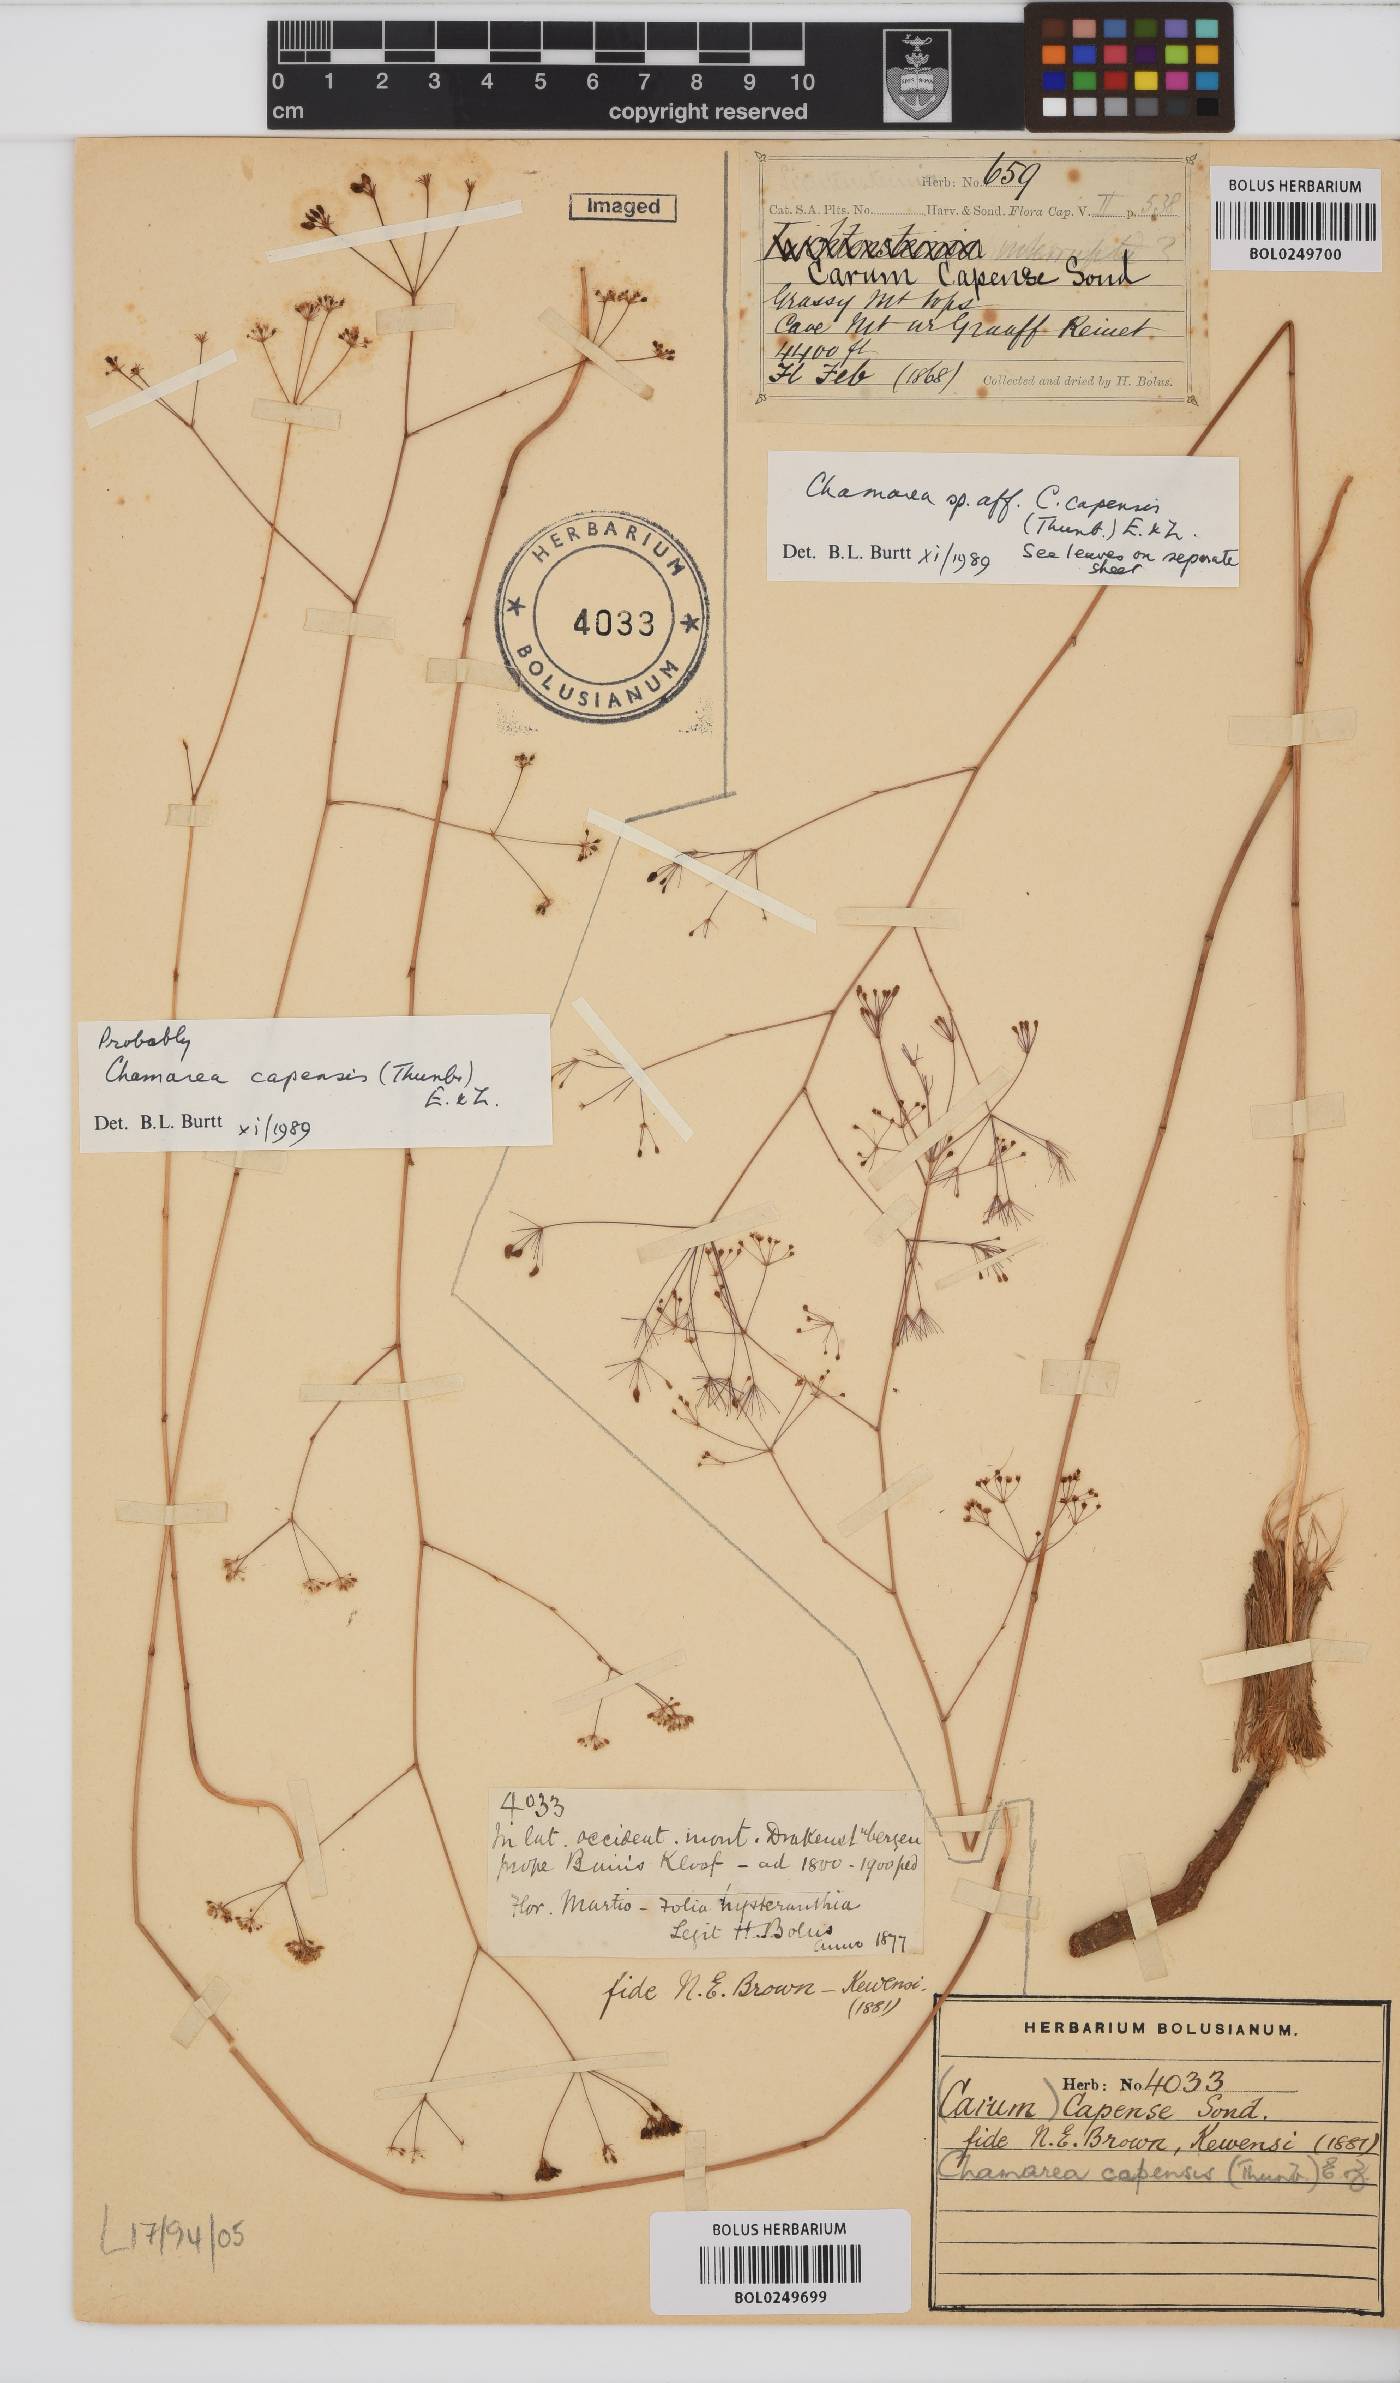 0 1 2 3 4 5 6 7 8 9 10
cm
copyright reserved
Imaged
Herb: No. 659
Cat. S.A. Plts. No. Harv. & Sond. Flora Cap. V. II p. 538
Lichtensteinia interrupta ?
Carum Capense Sond
Grassy Mt tops
Cave Mt nr Graaff Reinet
4400 ft
Fl Feb (1868) Collected and dried by H. Bolus.
BOLUS HERBARIUM
BOL0249700
Chamarea sp. aff. C. capensis
(Thunb.) E. & Z.
Det. B.L. Burtt xi/1989 See leaves on separate
sheet
HERBARIUM
4033
BOLUSIANUM
Probably
Chamarea capensis (Thunb.)
E. & Z.
Det. B.L. Burtt xi/1989
4033
In lat. occident. mont. Drakenst.bergen
prope Bains Kloof – ad 1800-1900 ped
Flor. Martio – Folia hysteranthia
Legit H. Bolus
anno 1877
fide N.E. Brown – Kewensi.
(1881)
HERBARIUM BOLUSIANUM.
Herb: No 4033
(Carum) Capense Sond.
fide N.E. Brown, Kewensi (1881)
Chamarea capensis (Thunb.) E. Z.
L17/94/05
BOLUS HERBARIUM
BOL0249699